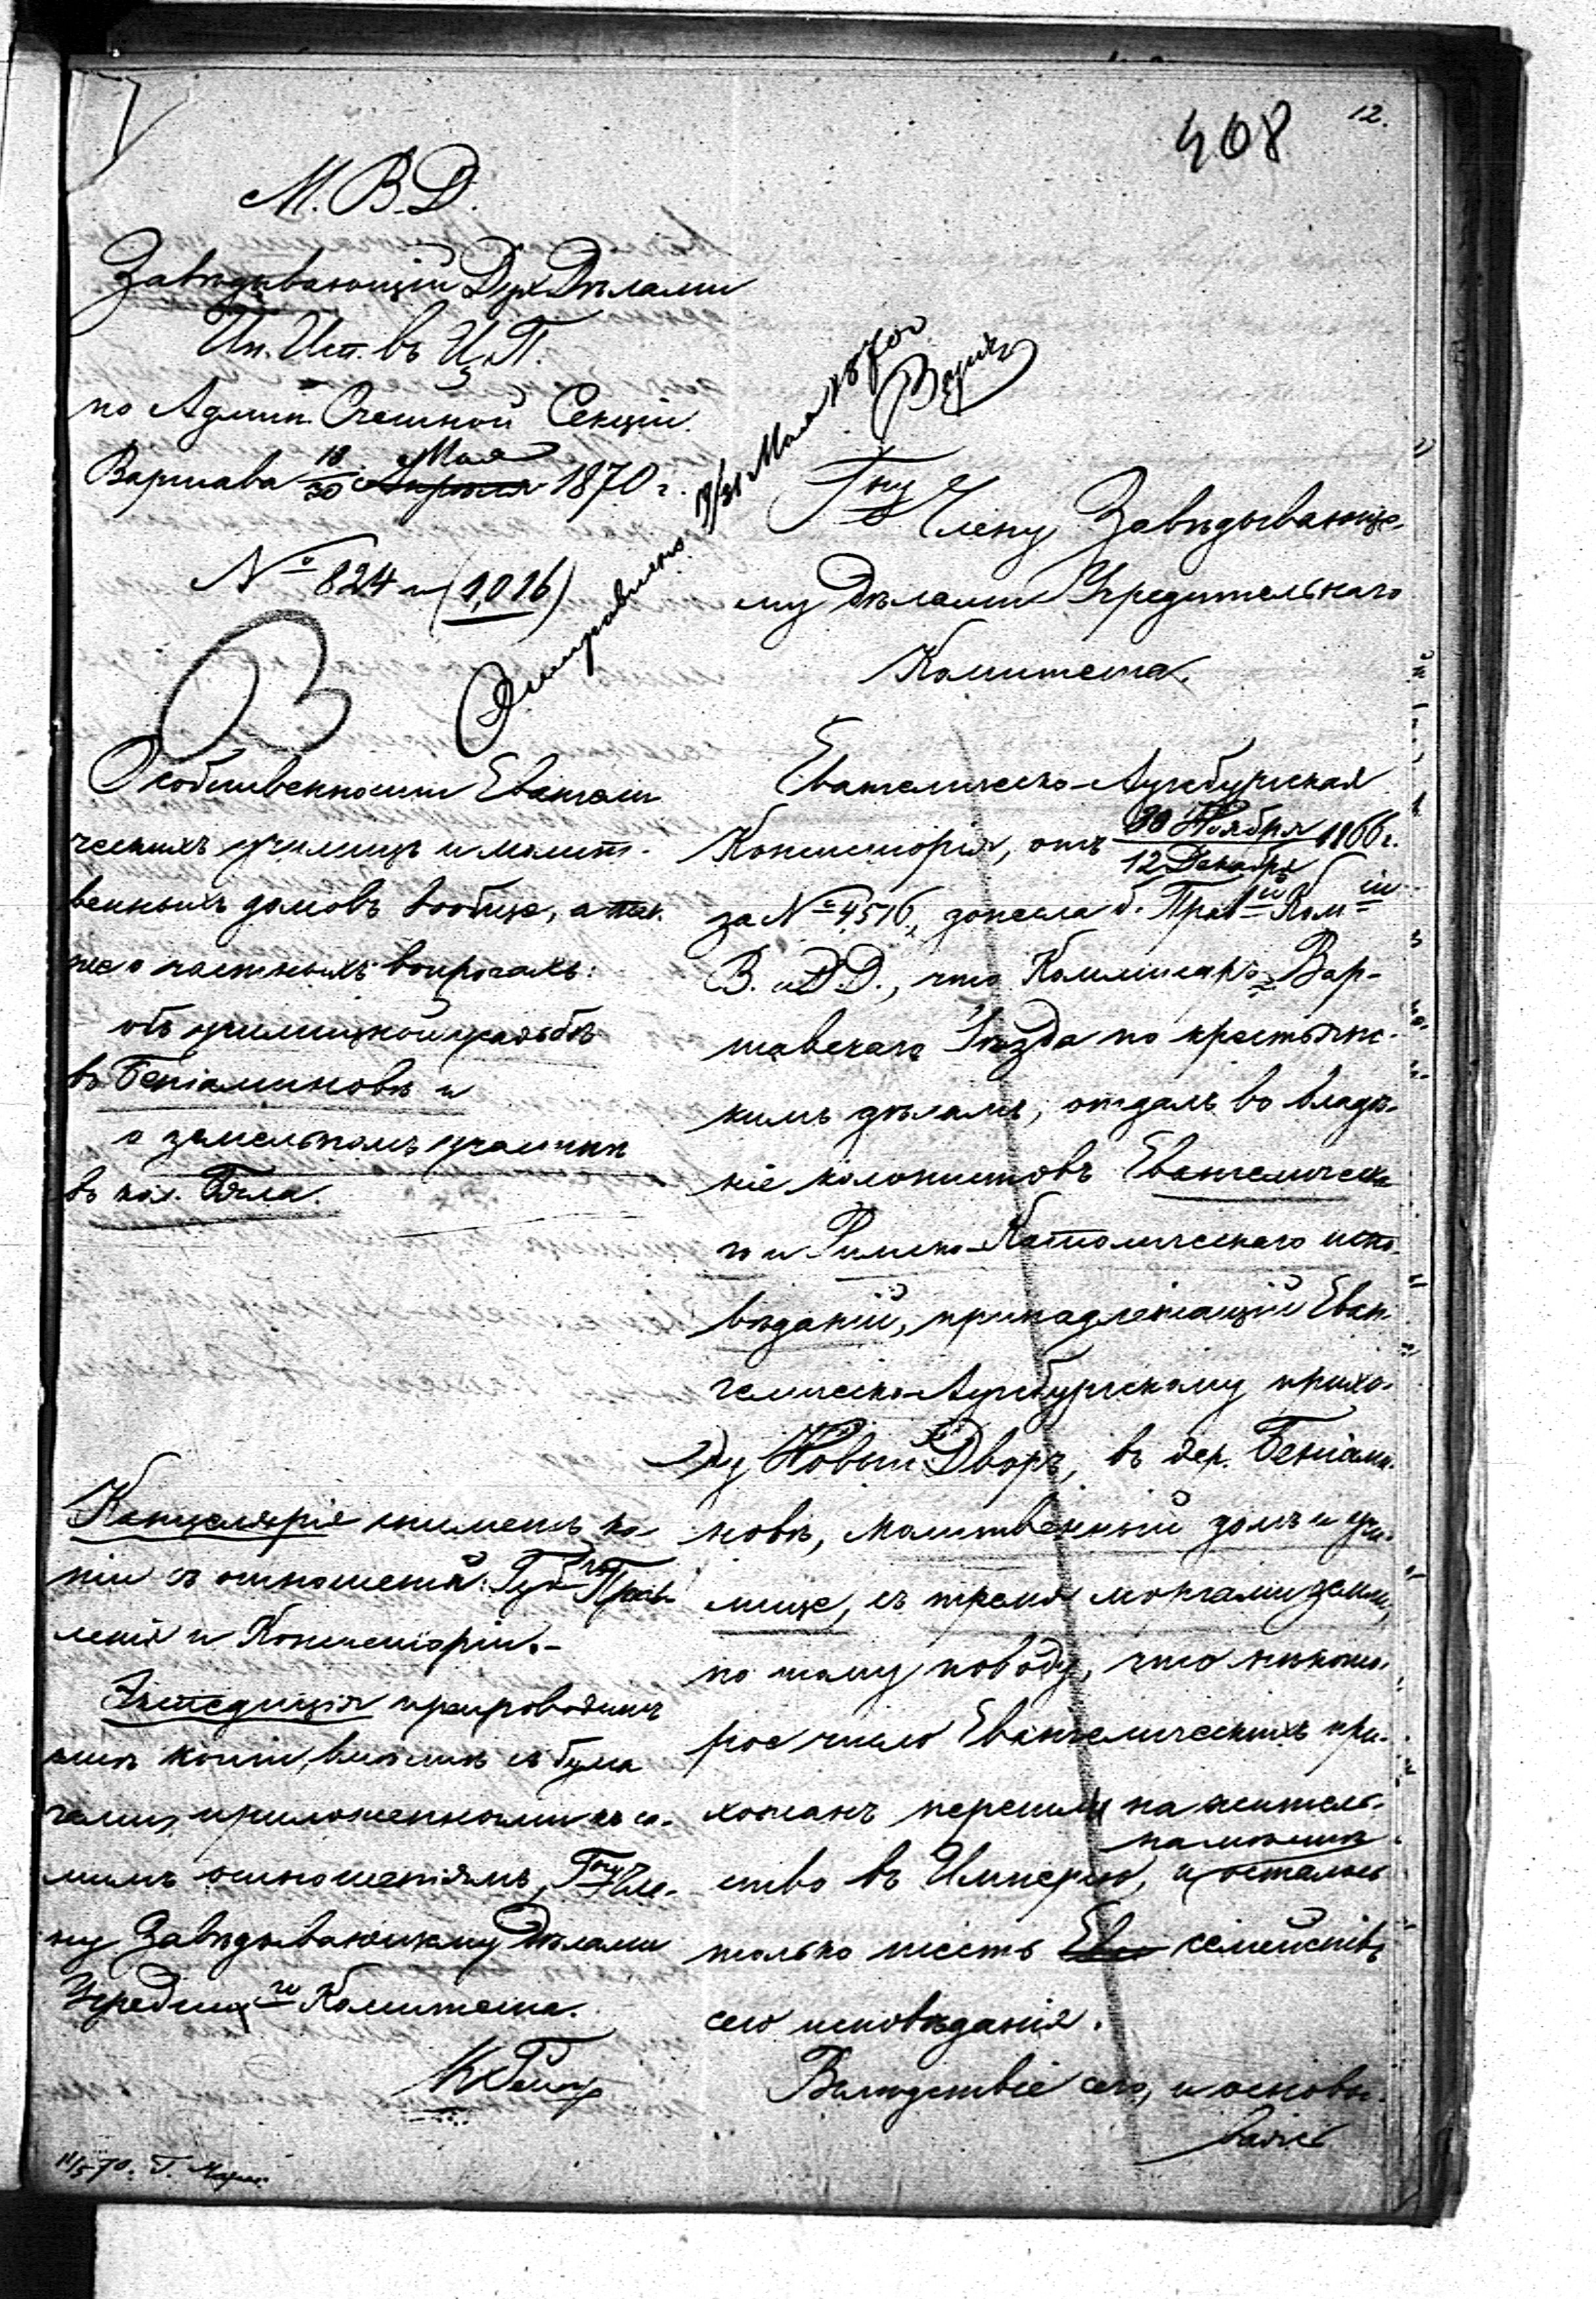 12.
408
М.В.Д.
Завѣдывающій Дух. Дѣлами
Ин. Исп. въ Ц. П.
по Админ. Счетной Секціи.
Варшава 18/30 Мая Апрѣля 1870 г.
№ 824 (1,016)
Отправлено 19/31 Мая 1870 г.
Гну Члену Завѣдывающе-
му Дѣлами Учредительнаго
Комитета.
О собственности Евангели
ческихъ училищъ и молит-
венныхъ домовъ вообще, а так-
же о частныхъ вопросахъ:
объ училищной усадьбѣ
въ Беніаминовѣ и
о земельномъ участкѣ
въ кол. Бяла.
Канцелярія сниметъ ко
піи съ отношеній: Губ. го Прав
ленія и Консисторіи.-
Экспедиція препроводитъ
копіи, вмѣстѣ съ бума
гами, приложенными къ са-
мимъ отношеніямъ, Гну Чле-
ну Завѣдывающему Дѣлами
Учредит го Комитета.
Евангелическо-Аугсбургская
Консисторія, отъ 30 Ноября / 12 Декабря 1866 г.
за № 4516, донесла б. Прав ой Ком іи
В. и Д. Д., что Коммисаръ Вар-
шавскаго Уѣзда по крестьянс-
кимъ дѣламъ, отдалъ во владѣ-
ніе колонистовъ Евангелическа
го и Римско-Католическаго испо
вѣданій, принадлежащій Еван-
гелическо-Аугсбургскому прихо-
ду Новый Дворъ, въ дер. Беніами-
новѣ, молитвенный домъ и учи-
лище, съ тремя моргами земли,
по тому поводу, что нѣкото-
рое число Евангелическихъ при-
хожанъ перешли на житель-
ство въ Имперію, и на мѣстѣ осталось
только шесть Ева семействъ
сего исповѣданія.
Вслѣдствіе сего, и основы-
ваясь